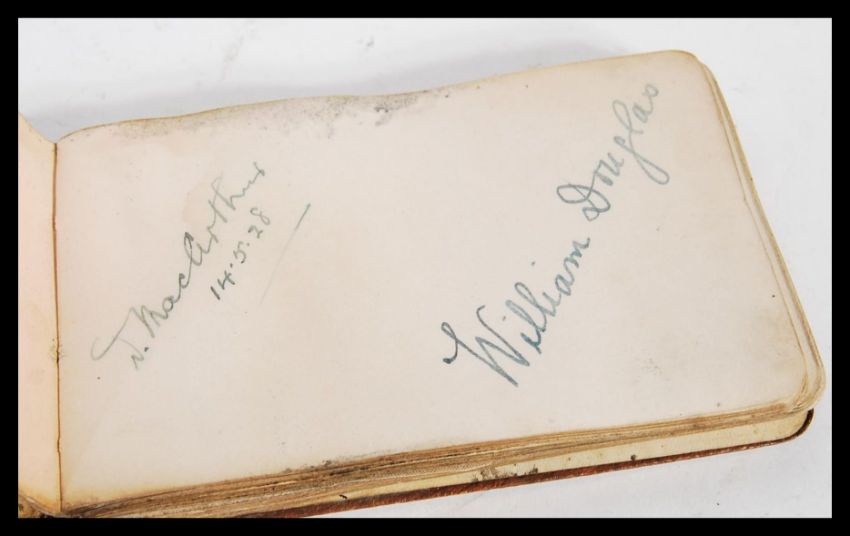 D. MacArthur
14.5.28
William Douglas